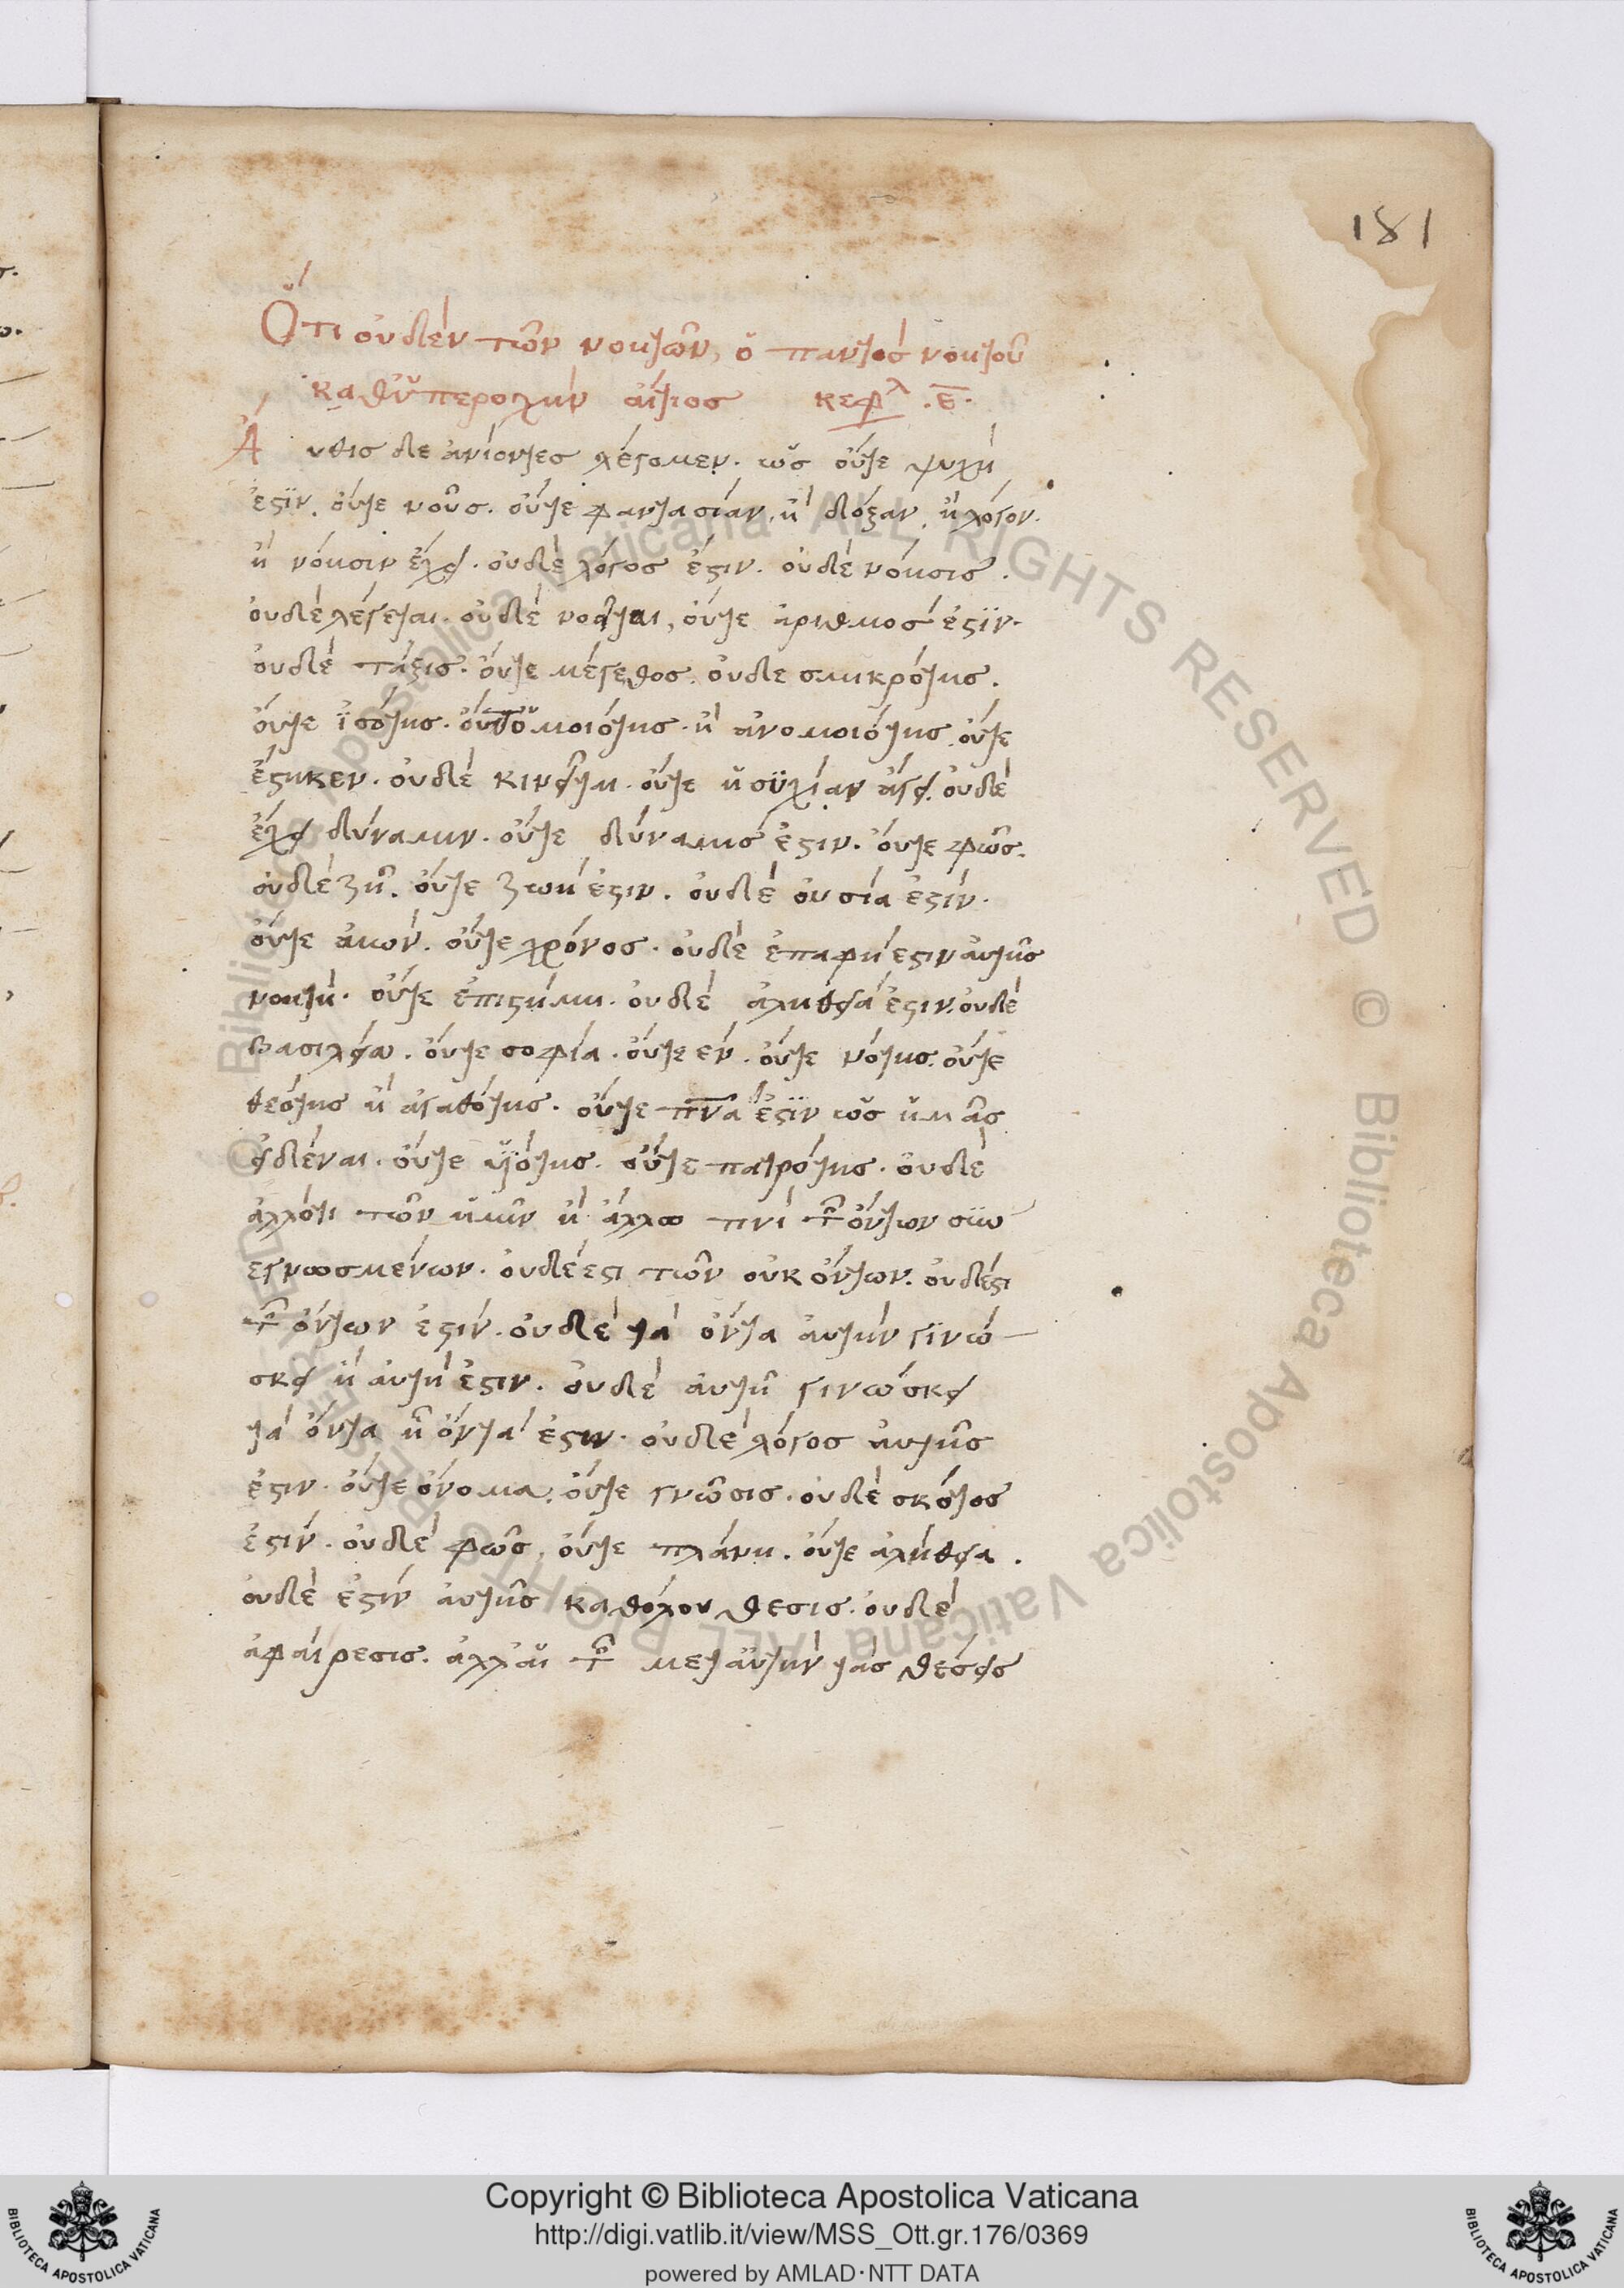 181
Ὅτι οὐδὲν τῶν νοητῶν, ὁ παντὸς νοητοῦ
καθ' ὑπεροχὴν αἴτιος κεφλ .ε̅.
Αὖθις δὲ ἀνιόντες λέγομεν. ὡς οὔτε ψυχή
ἐστϊν. οὔτε νοῦς. οὔτε φαντασίαν. ἢ δόξαν. ἢ λόγον.
ἢ νόησιν ἔχει. οὐδὲ λόγος ἐστιν. οὐδὲ νόησις.
οὐδὲ λέγεται. οὐδὲ νοεῖται, οὔτε ἀριθμος ἐστϊν.
οὐδὲ τάξις. οὔτε μέγεθος. οὐδε σμικρότης.
οὔτε ἰσότης. οὔτε ὁμοιότης. ἢ ἀνομοιότης. οὔτε
ἕστηκεν. οὐδὲ κινεῖται. οὔτε ἡσυχίαν ἄγει. οὐδὲ
ἔχει δύναμιν. οὔτε δύναμις ἐστιν. οὔτε φῶς.
οὐδὲ ζῆ. οὔτε ζωή ἐστιν. οὐδὲ οὐσία ἐστίν.
οὔτε αἰών. οὔτε χρόνος. οὐδὲ ἐπαφή ἐστιν αὐτῆς
νοητή. οὔτε ἐπιστήμη. οὐδὲ ἀλήθειά ἐστιν. οὐδὲ
βασιλεία. οὔτε σοφία. οὔτε εν. οὔτε νότης. οὔτε
θεότης ἢ ἀγαθότης. οὔτε πν̅α ἐστϊν ὡς ἡμᾶς
εἰδέναι. οὔτε υἱότης. οὔτε πατρότης. οὐδὲ
ἄλλό τι τῶν ἡμῖν ἢ ἄλλω τινὶ τῶν ὄντων συν
εγνωσμένων. οὐδέ τι τῶν οὐκ ὄντων. οὐδέ τι
τῶν ὄντων ἐστίν. οὐδὲ τὰ ὄντα αὐτὴν γϊνώ
σκει ἢ αὐτή ἐστιν. οὐδὲ αὐτὴ γινώσκει
τὰ ὄντα ἢ ὄντα ἐστιν. οὐδὲ λόγος αὐτῆς
ἐστιν. οὔτε ὄνομα. οὔτε γνῶσις. οὐδὲ σκότος
ἐστίν. οὐδὲ φῶς. οὔτε πλάνη. οὔτε ἀλήθεια.
οὐδὲ ἐστίν αὐτῆς καθόλου θέσις. οὐδὲ
ἀφαίρεσις. ἀλλὰ τῶν μετ' αὐτὴν τὰς θέσεις
Copyright © Biblioteca Apostolica Vaticana
http://digi.vatlib.it/view/MSS_Ott.gr.176/0369
powered by AMLAD·NTT DATA
BIBLIOTECA APOSTOLICA VATICANA
BIBLIOTECA APOSTOLICA VATICANA
© Biblioteca Apostolica Vaticana ALL RIGHTS RESERVED © Biblioteca Apostolica Vaticana ALL RIGHTS RESERVED